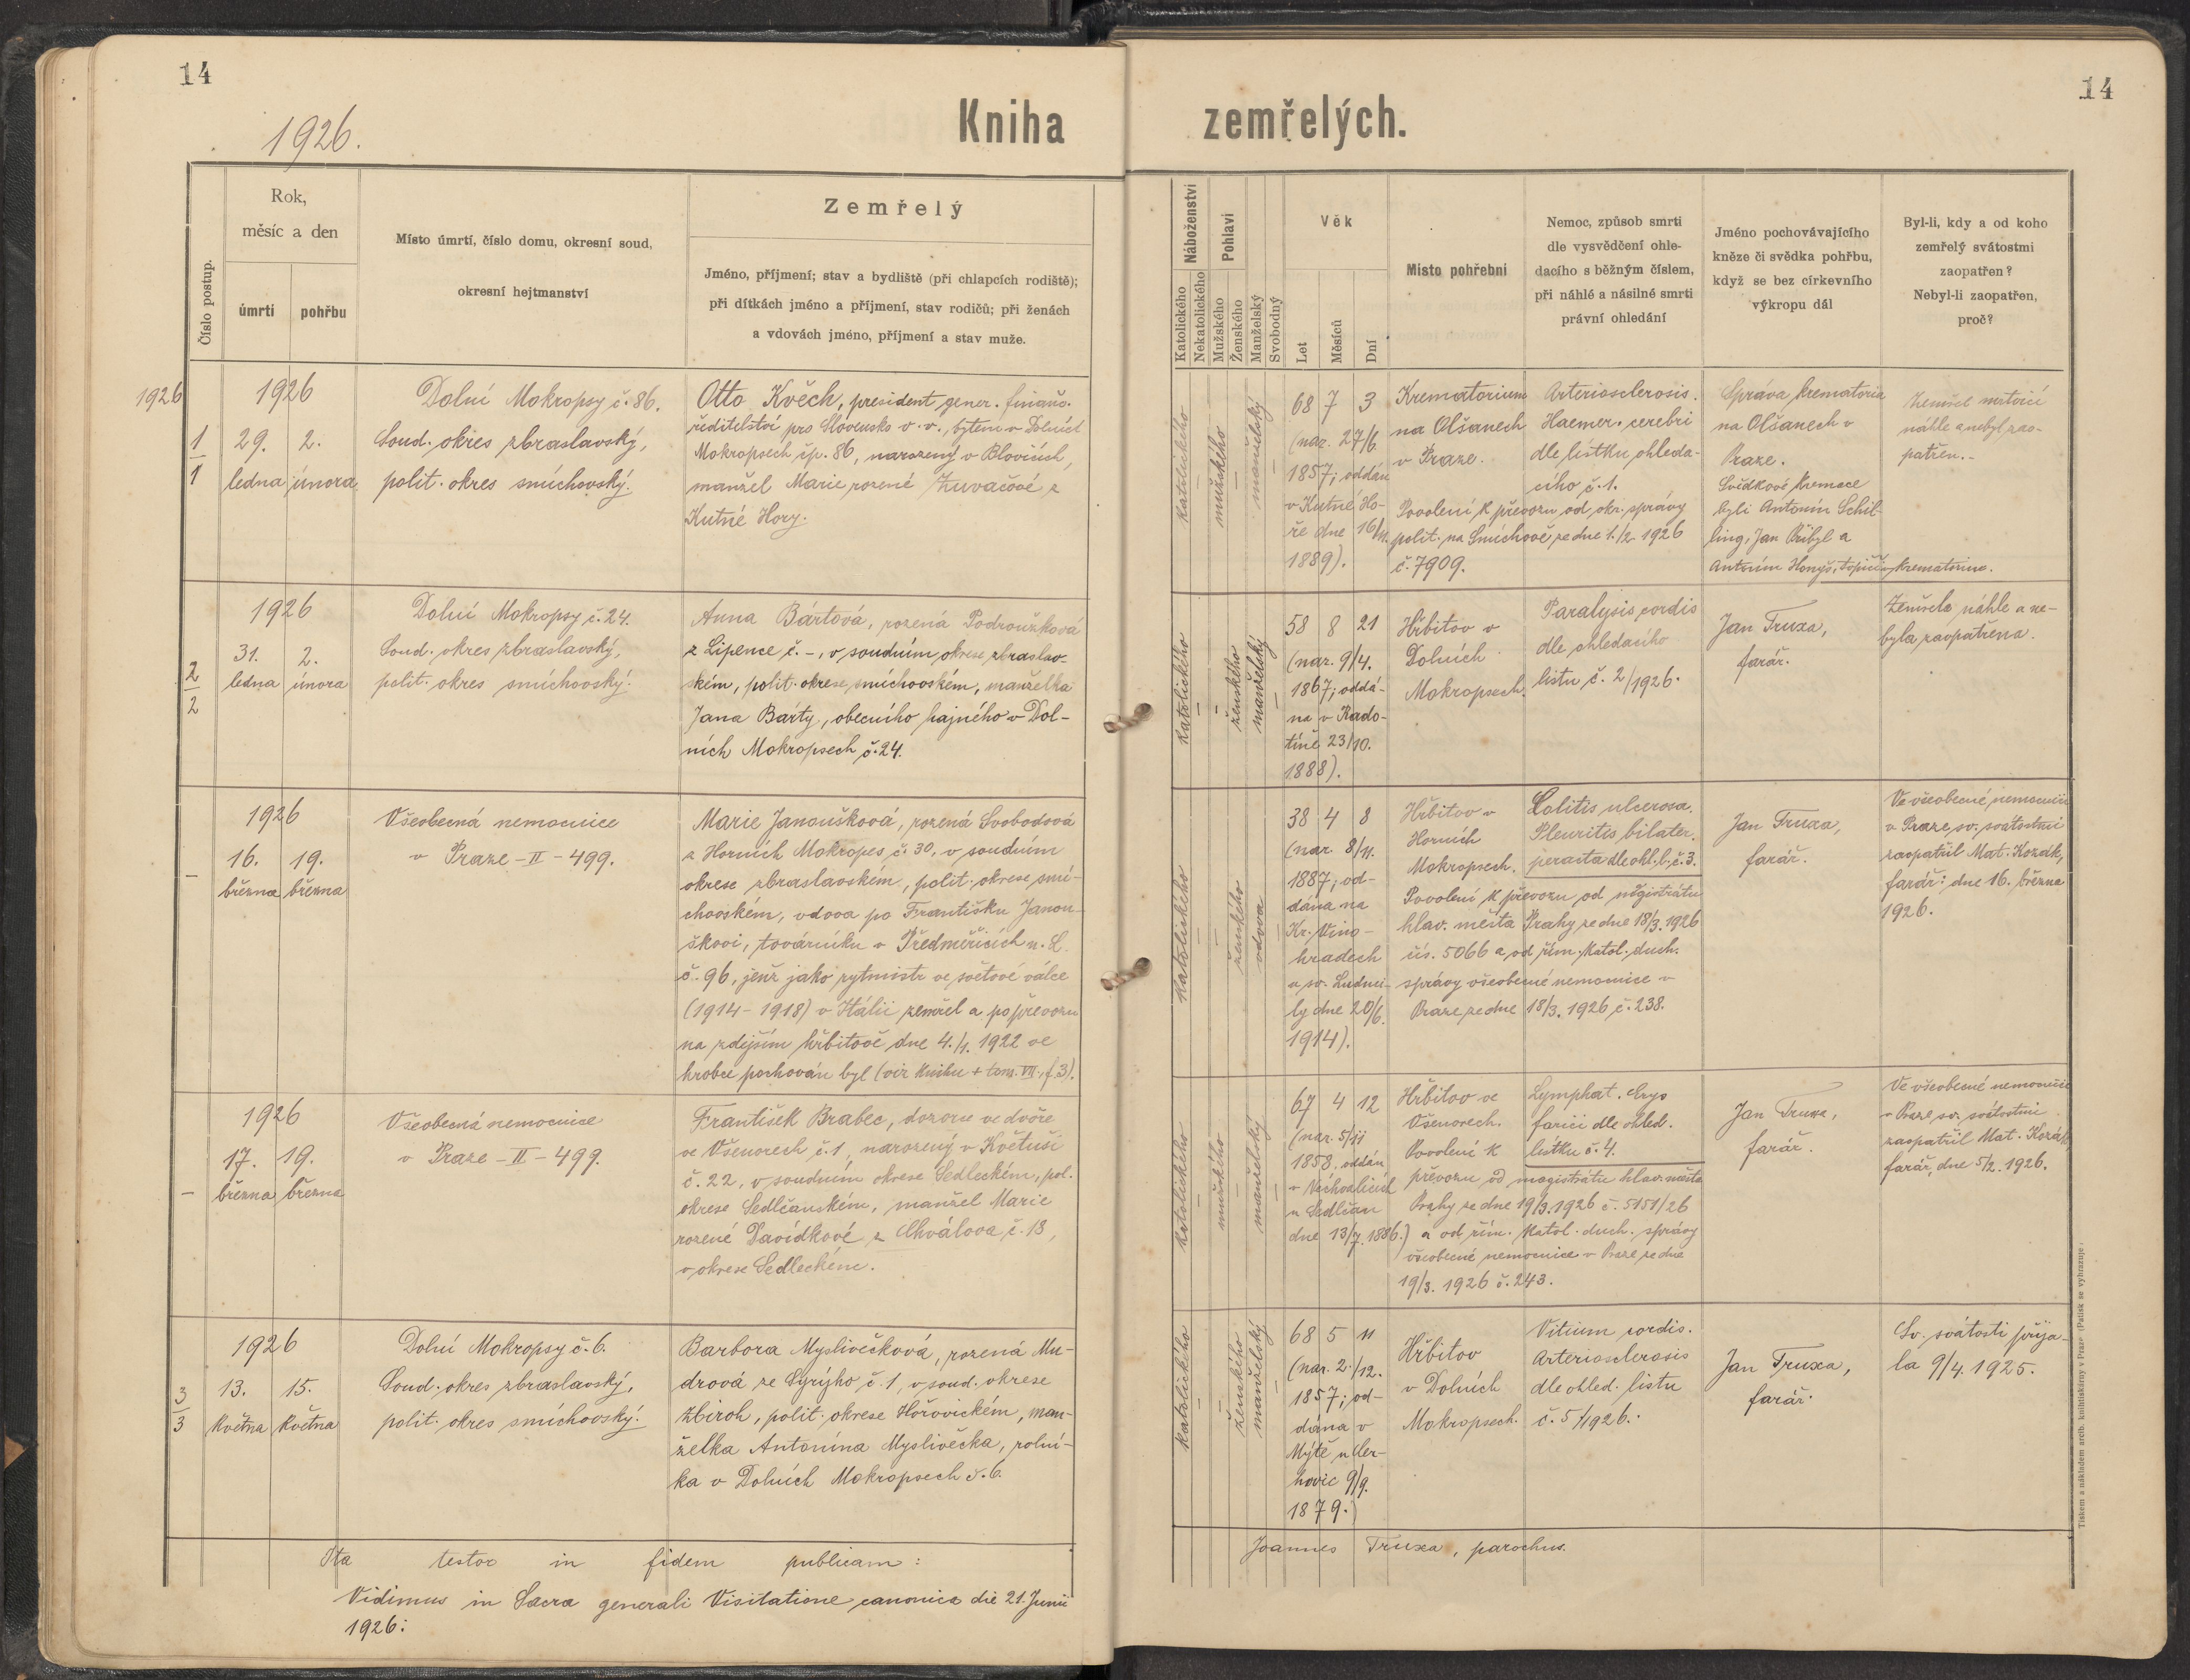 14
1926.
Kniha
Číslo postup.
Rok,
měsíc a den
úmrtí
pohřbu
Místo úmrtí, číslo domu, okresní soud,
okresní hejtmanství
Zemřelý
Jméno, příjmení; stav a bydliště (při chlapcích rodiště);
při dítkách jméno a příjmení, stav rodičů; při ženách
a vdovách jméno, příjmení a stav muže.
1926
1
1
1926
29. 2.
ledna února
Dolní Mokropsy č. 86.
Soud. okres zbraslavský,
polit. okres smíchovský.
Otto Kvěch, president gener. finanč.
ředitelství pro Slovensko v. v., bytem v Dolních
Mokropsech čp. 86, narozený v Blovicích,
manžel Marie rozené Zuvačové z
Kutné Hory.
2
2
1926
31. 2.
ledna února
Dolní Mokropsy č. 24.
Soud. okres zbraslavský,
polit. okres smíchovský.
Anna Bártová, rozená Podroužková
z Lipence č. -, v soudním okrese zbraslav-
ském, polit. okrese smíchovském, manželka
Jana Bárty, obecního hajného v Dol-
ních Mokropsech č. 24.
–
1926
16. 19.
března března
Všeobecná nemocnice
v Praze - II - 499.
Marie Janoušková, rozená Svobodová
z Horních Mokropes č. 30, v soudním
okrese zbraslavském, polit. okrese smí-
chovském, vdova po Františku Janou-
škovi, továrníku v Předměřicích n. L.
č. 96, jenž jako rytmistr ve světové válce
(1914 - 1918) v Itálii zemřel a po převozu
na zdejším hřbitově dne 4./1. 1922 ve
hrobce pochován byl (viz Knihu + tom. VII., f. 3).
–
1926
17. 19.
března března
Všeobecná nemocnice
v Praze - II - 499.
František Brabec, dozorce ve dvoře
ve Všenorech č. 1, narozený v Květuši
č. 22, v soudním okrese Sedleckém, pol.
okrese Sedlčanském, manžel Marie
rozené Davídkové z Chválova č. 18,
v okrese Sedleckém.
3
3
1926
13. 15.
května května
Dolní Mokropsy č. 6.
Soud. okres zbraslavský,
polit. okres smíchovský.
Barbora Myslivečková, rozená Mu-
drová ze Sýrýho č. 1, v soud. okrese
Zbiroh, polit. okrese Hořovickém, man-
želka Antonína Myslivečka, rolní-
ka v Dolních Mokropsech č. 6.
Ita testor in fidem publicam:
Vidimus in Sacra generali Visitatione canonica die 21. Junii
1926:
14
zemřelých.
Náboženství
Katolického
Nekatolického
Pohlaví
Mužského
Ženského
Manželský
Svobodný
Věk
Let
Měsíců
Dní
Místo pohřební
Nemoc, způsob smrti
dle vysvědčení ohle-
dacího s běžným číslem,
při náhlé a násilné smrti
právní ohledání
Jméno pochovávajícího
kněze či svědka pohřbu,
když se bez církevního
výkropu dál
Byl-li, kdy a od koho
zemřelý svátostmi
zaopatřen?
Nebyl-li zaopatřen,
proč?
katolického
mužského
manželský
68 7 3
(nar. 27/6.
1857; oddán
v Kutné Ho-
ře dne 16/11.
1889).
Krematorium
na Olšanech
v Praze.
Arteriosclerosis.
Haemer. cerebri
dle lístku ohleda-
cího č. 1.
Povolení k převozu od okr. správy
polit. na Smíchově ze dne 1./2. 1926
č. 7909.
Správa krematoria
na Olšanech v
Praze.
Svědkové kremace
byli Antonín Schil-
ling, Jan Přibyl a
Antonín Honyš, topiči v krematoriu.
Zemřel mrtvicí
náhle a nebyl zao-
patřen.-
katolického
ženského
manželský
58 8 21
(nar. 9/4.
1867; oddá-
na v Rado-
tíně 23/10.
1888).
Hřbitov v
Dolních
Mokropsech.
Paralysis cordis
dle ohledacího
listu č. 2/1926.
Jan Truxa,
farář.
Zemřela náhle a ne-
byla zaopatřena.
katolického
ženského
vdova
38 4 8
(nar. 8/11.
1887; od-
dána na
Kr. Vino-
hradech
u sv. Ludmi-
ly dne 20/6.
1914).
Hřbitov v
Horních
Mokropsech.
Colitis ulcerosa.
Pleuritis bilater.
peracta dle ohl. l. č. 3.
Povolení k převozu od magistrátu
hlav. města Prahy ze dne 18/3. 1926
čís. 5066 a od řím. katol. duch.
správy všeobecné nemocnice v
Praze ze dne 18/3. 1926 č. 238.
Jan Truxa,
farář.
Ve všeobecné nemocnici
v Praze sv. svátostmi
zaopatřil Mat. Kozák,
farář: dne 16. března
1926.
katolického
mužského
manželský
67 4 12
(nar. 5/11
1858. oddán
v Věchozlicích
u Sedlčan
dne 13/7. 1886.)
Hřbitov ve
Všenorech.
Povolení k
Lymphat.
dle ohled.
lístku č. 4.
převozu od magistrátu hlav. města
Prahy ze dne 19/3. 1926 č. 5151/26
a od řím. katol. duch. správy
všeobecné nemocnice v Praze ze dne
19/3. 1926 č. 243.
Jan Truxa,
farář.
Ve všeobecné nemocnici
v Praze sv. svátostmi
zaopatřil Mat. Kozák,
farář, dne 5/2. 1926.
katolického
ženského
manželský
68 5 11
(nar. 2./12.
1857; od-
dána v
Mýtě u Cer-
hovic 9/9.
1879.)
Hřbitov
v Dolních
Mokropsech.
Vitium cordis.
Arteriosclerosis
dle ohled. listu
č. 5/1926.
Jan Truxa,
farář.
Sv. svátosti přija-
la 9/4. 1925.
Joannes Truxa, parochus.
Tiskem a nákladem arcib. knihtiskárny v Praze (Patisk se vyhrazuje.)